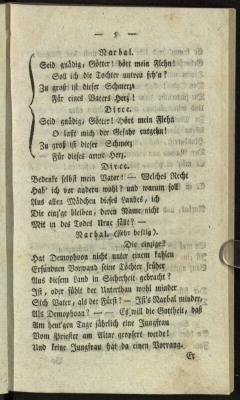 — 5 —
Narbal.
Seid gnädig, Götter! hört mein Flehn!
Soll ich die Tochter untreu seh'n?
Zu groß ist dieser Schmerz
Für eines Vaters Herz!
Dirce.
Seid gnädig, Götter! Hört mein Flehn
O laßt mich der Gefahr entgehn!
Zu groß ist dieser Schmerz
Für dieses arme Herz.
Dirce.
Bedenke selbst mein Vater! — Welches Recht
Hab' ich vor andern wohl? und warum soll
Aus allen Mädchen dieses Landes, ich
Die einz'ge bleiben, deren Name nicht
Mit in des Todes Urne fällt? —
Narbal. (Sehr heftig).
Die einzige?
Hat Demophoon nicht unter einem kahlen
Erfundnen Vorwand seine Töchter früher
Aus diesem Land in Sicherheit gebracht?
Ist, oder fühlt der Unterthan wohl minder
Sich Vater, als der Fürst? — Ist's Narbal minder,
Als Demophoon? — — Es will die Gottheit, daß
Am heut'gen Tage jährlich eine Jungfrau
Vom Priester am Altar geopfert werde!
Und keine Jungfrau hat da einen Vorrang.
Er